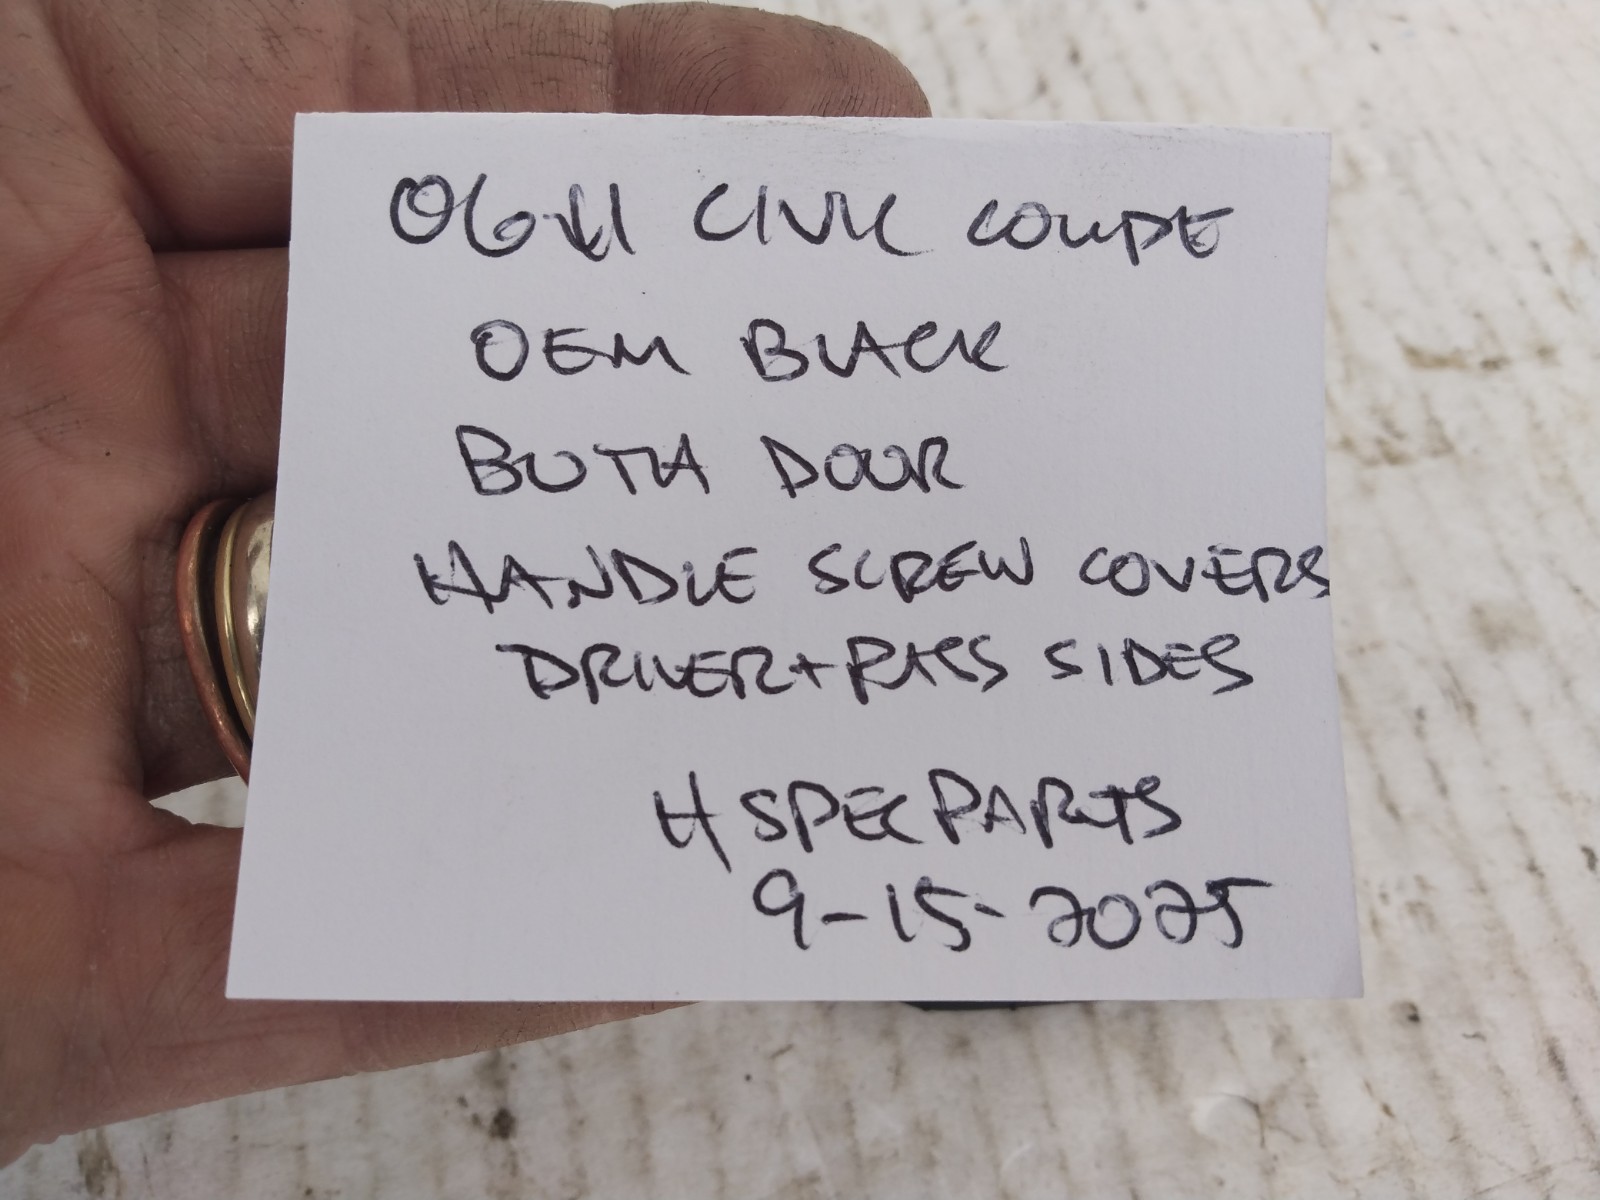 06-11 CIVIC COUPE
OEM BLACK
BOTH DOOR
HANDLE SCREW COVERS
DRIVER+PASS SIDES
H SPEC PARTS
9-15-2025